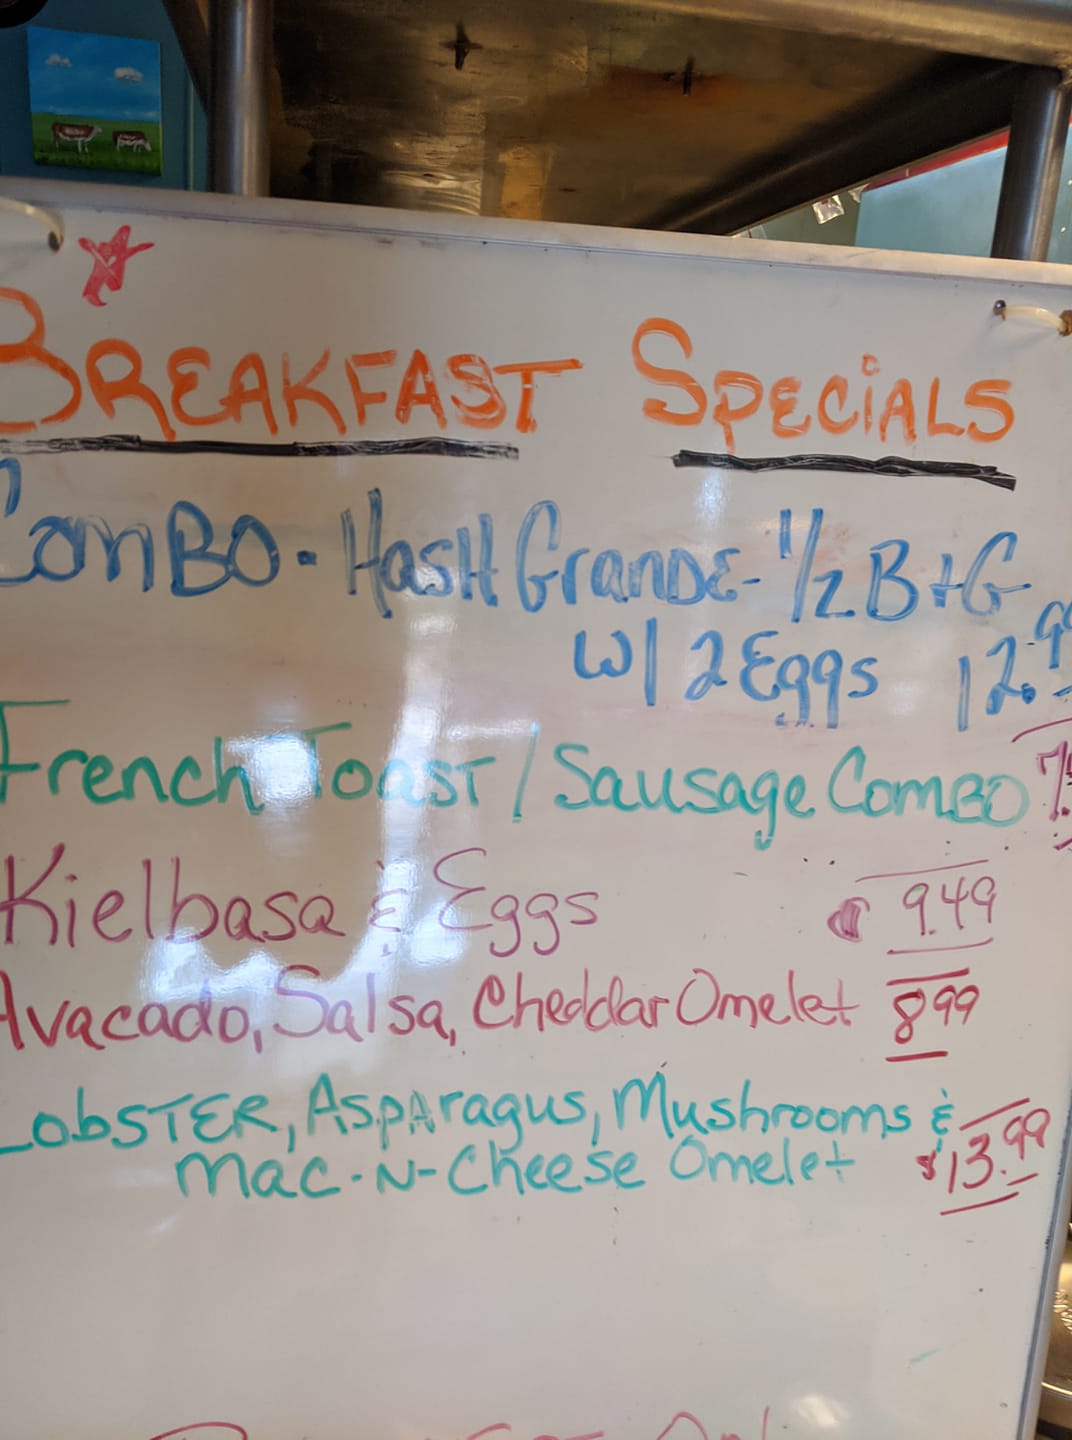 BREAKFAST SPECiALS
ComBO - HasH GranDE - 1/2 B+G
w/ 2 Eggs 12.99
French ToasT / Sausage ComBO
Kielbasa & Eggs 9.49
Avacado, Salsa, Cheddar Omelet 8.99
LobSTER, AspAragus, Mushrooms &
Mac-N-Cheese Omelet $13.99